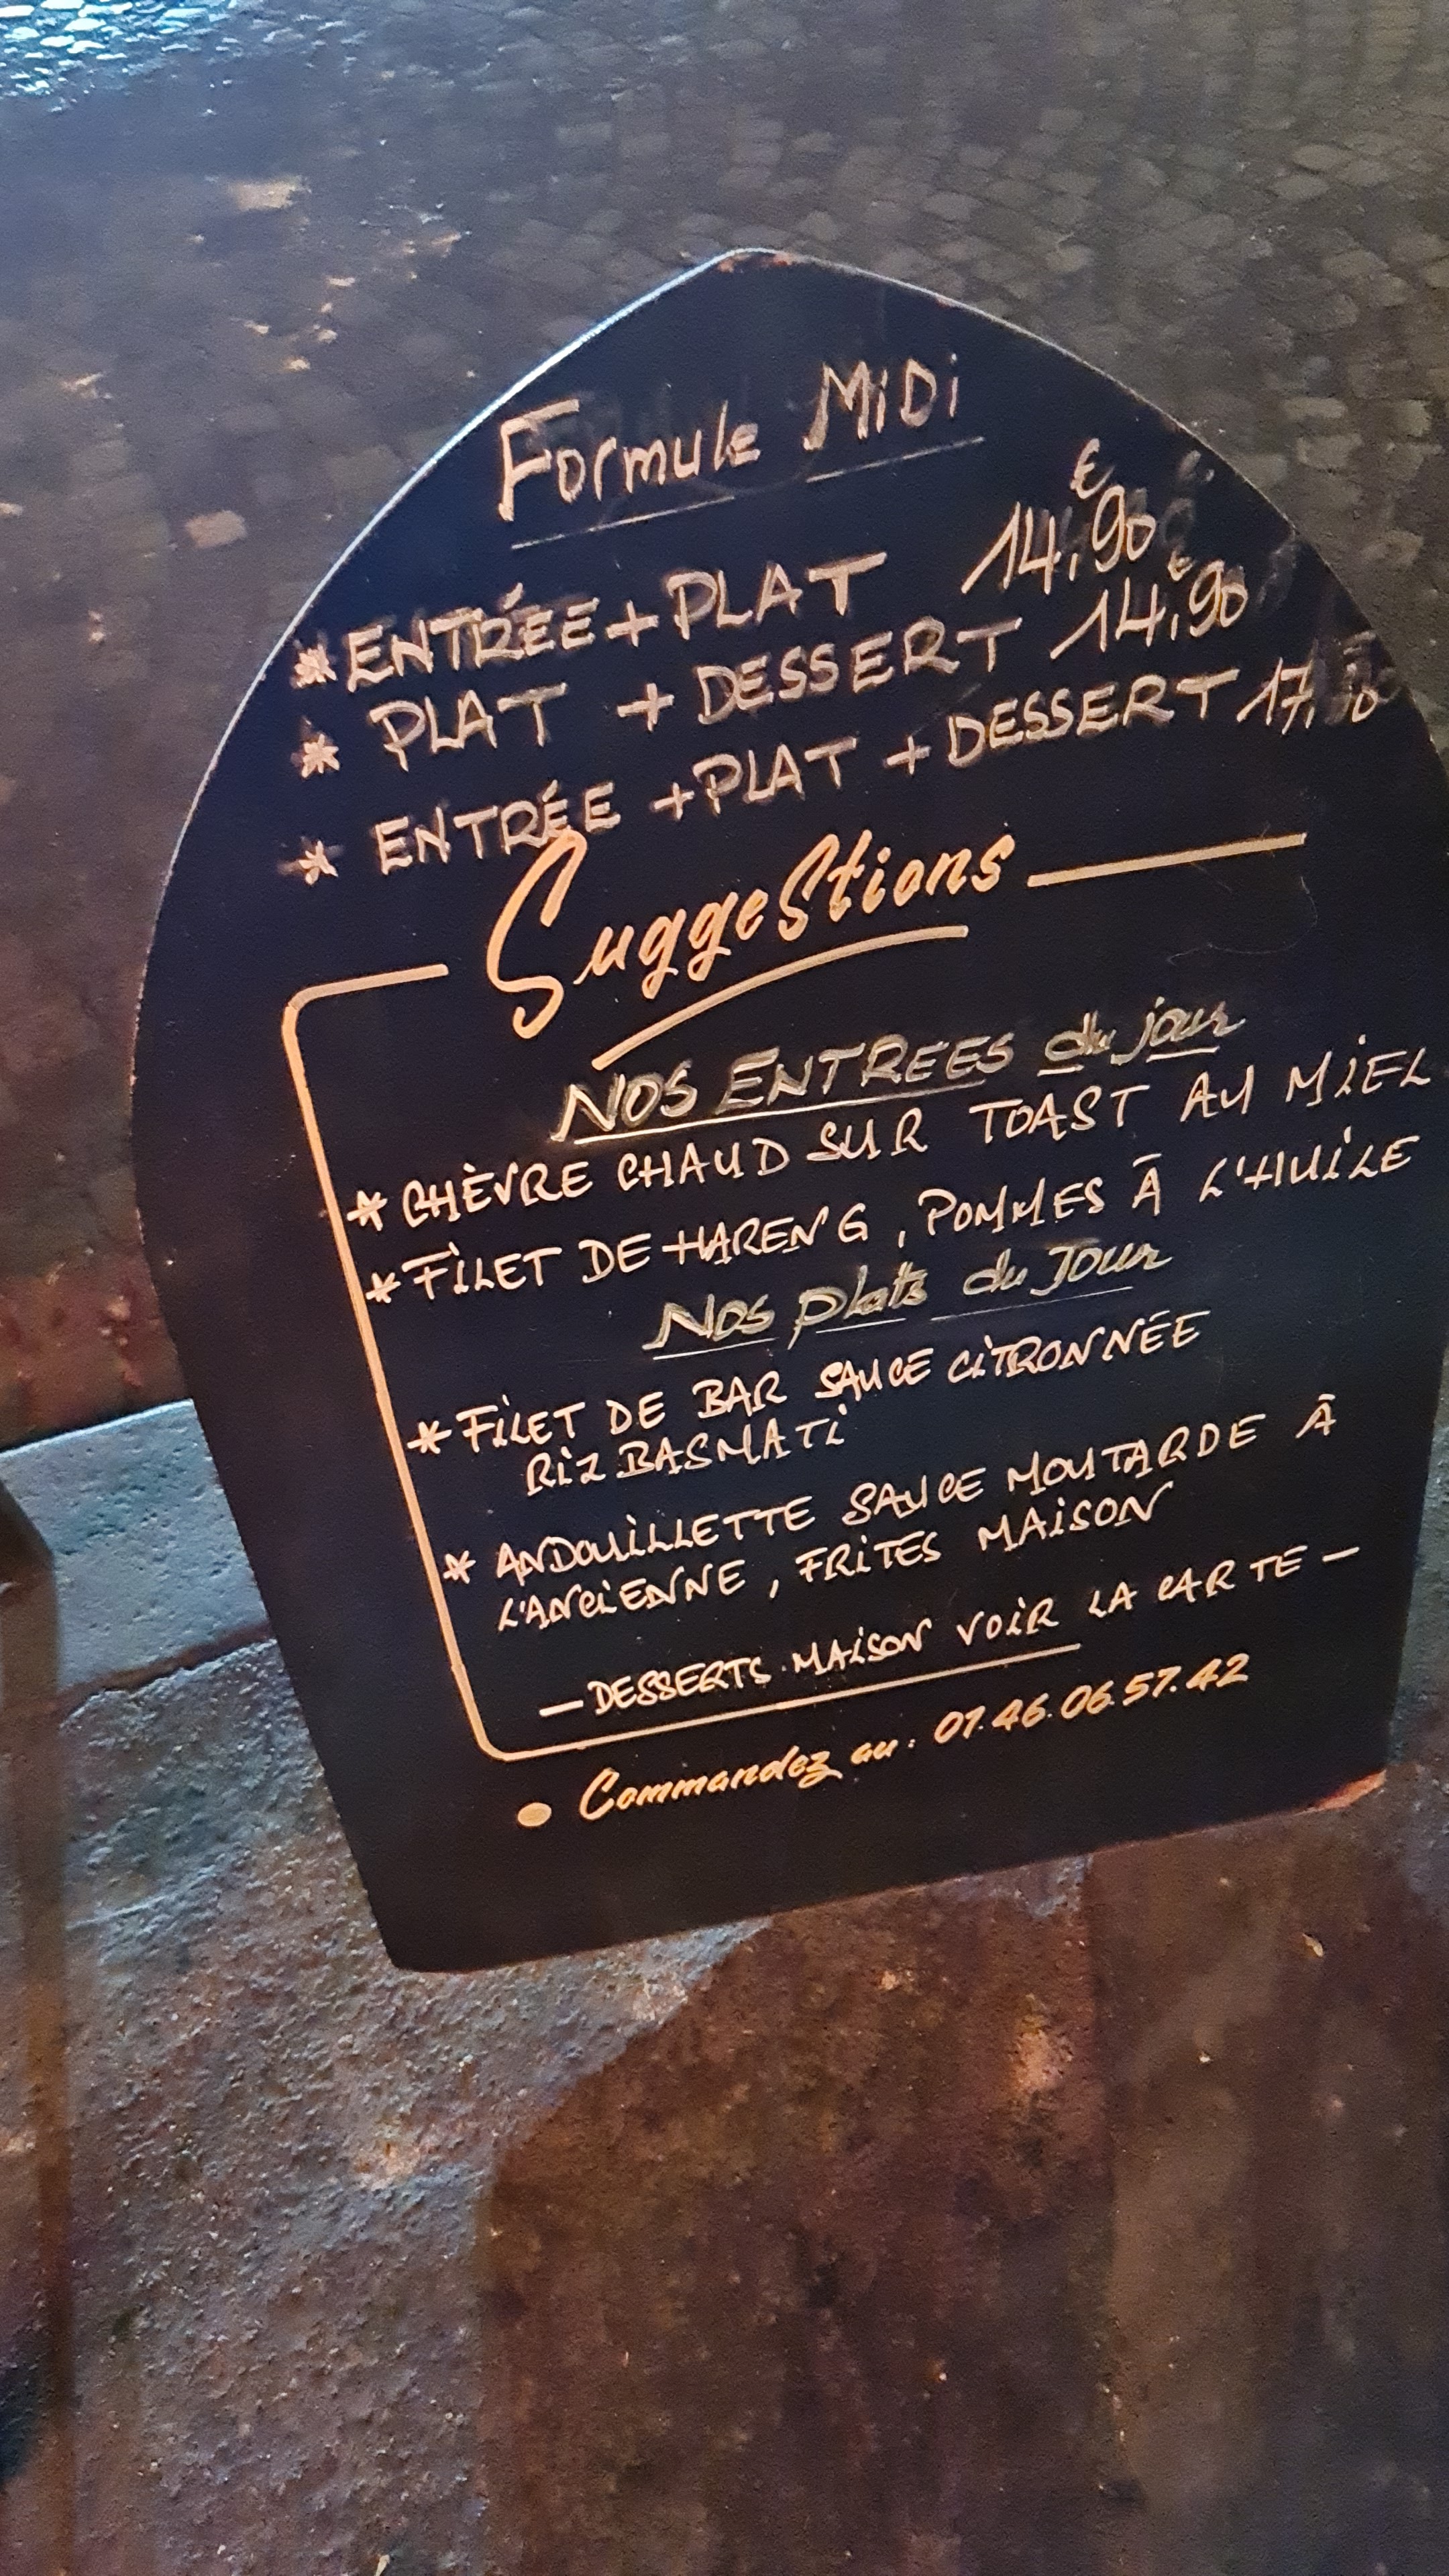 Formule MiDi
* ENTRÉE + PLAT 14,90 €
* PLAT + DESSERT 14,90 €
* ENTRÉE + PLAT + DESSERT
Suggestions
NOS ENTREES du jour
* CHÈVRE CHAUD SUR TOAST AU MiEL
* FiLET DE HARENG, POMMES À L'HUiLE
Nos plats du Jour
* FiLET DE BAR SAUCE CiTRONNÉE
RiZ BASMATi
* ANDOUiLLETTE SAUCE MOUTARDE À
L'ANCiENNE, FRiTES MAiSON
— DESSERTS MAiSON VOiR LA CARTE —
• Commandez au : 01.46.06.57.42